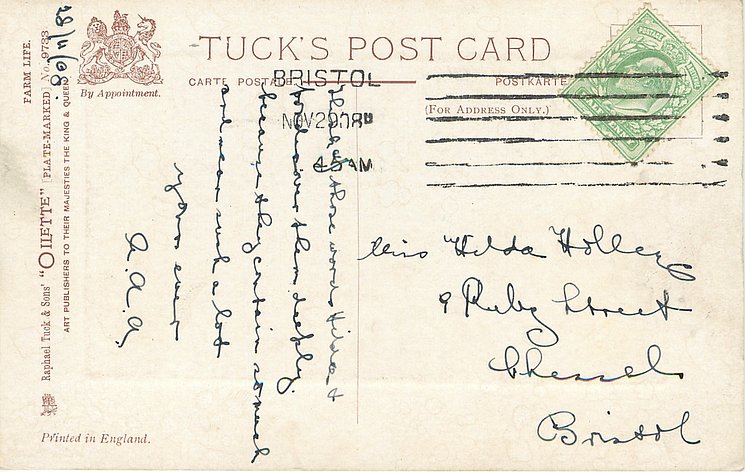 TUCK'S POST CARD
CARTE POSTALE
POSTKARTE
By Appointment.
(FOR ADDRESS ONLY.)
BRISTOL
NOV 29 08
4.0 AM
FARM LIFE.
Raphael Tuck & Sons' "OILETTE" [PLATE-MARKED] No. 9733
ART PUBLISHERS TO THEIR MAJESTIES THE KING & QUEEN
Printed in England.
28/11/08
those words Hilda &
over them deeply.
because they contain so much
and mean such a lot
yours ever
A.A.G.
Miss Hilda Holley
9 Ruby Street
Chessels
Bristol